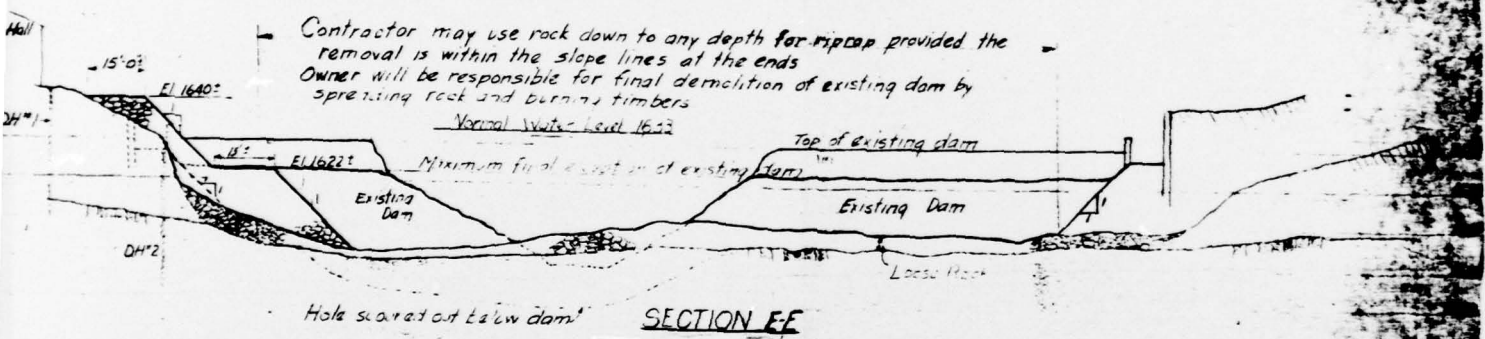 Hall
Contractor may use rock down to any depth for riprap provided the
removal is within the slope lines at the ends
Owner will be responsible for final demolition of existing dam by
spreading rock and burning timbers
15'-0"±
El. 1640±
DH#1
Normal Water Level
15'±
El. 1622±
Top of existing dam
Maximum final of existing dam
Existing
Dam
Existing Dam
DH#2
Loose Rock
Hole scoured out below dam
SECTION E-E